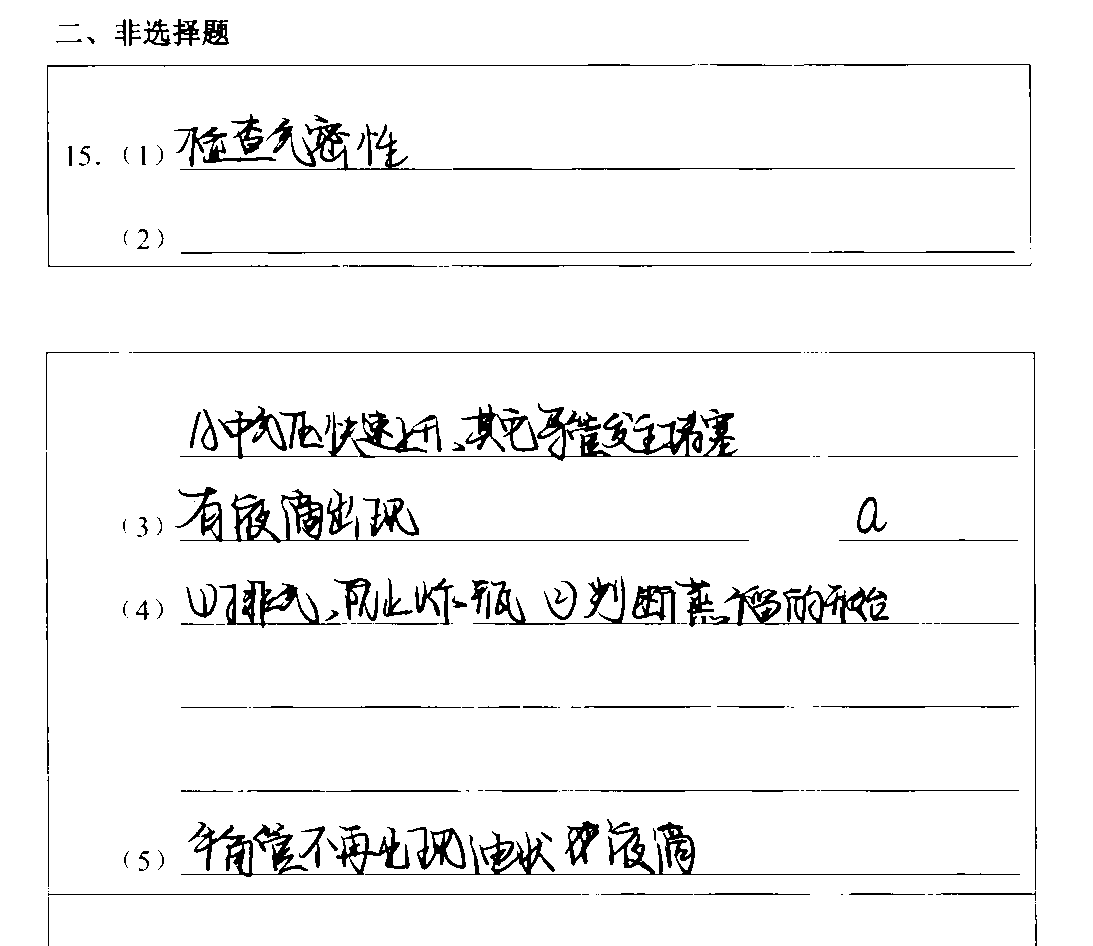 二、非选择题
15.（1）检查气密性
（2）
A中气压快速上升、其它导管发生堵塞
（3）有液滴出现 a
（4）①排气、防止炸瓶 ②判断蒸馏的开始
（5）牛角管不再出现油状液滴